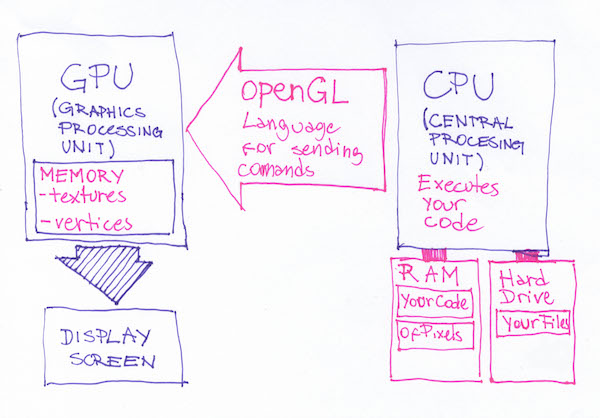 GPU
(GRAPHICS
PROCESSING
UNIT)
MEMORY
-textures
-vertices
DISPLAY
SCREEN
OPenGL
Language
For sending
comands
CPU
(CENTRAL
PROCESING
UNIT)
Executes
Your
code
RAM
YourCode
OfPixels
Hard
Drive
YourFiles